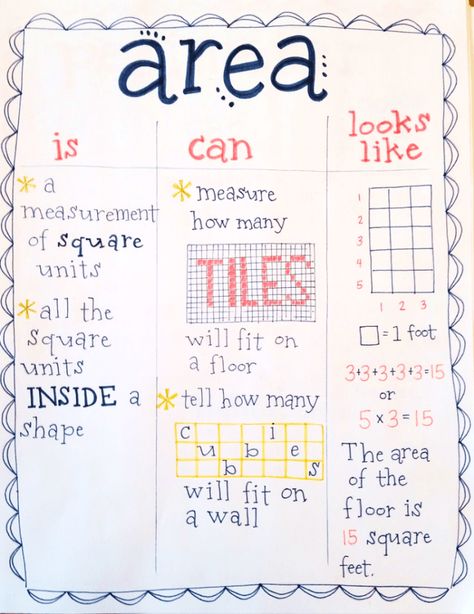 area
is
* a
measurement
of square
units
* all the
square
units
INSIDE a
shape
can
* measure
how many
TILES
will fit on
a floor
* tell how many
cubbies
will fit on
a wall
looks
like
1
2
3
4
5
1 2 3
= 1 foot
3+3+3+3+3=15
or
5 x 3 = 15
The area
of the
floor is
15 square
feet.